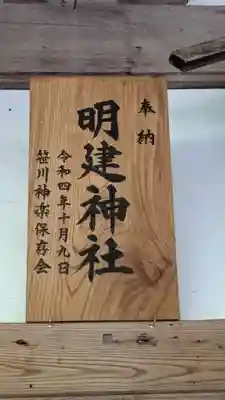 奉納
明建神社
令和四年十月九日
笹川神楽保存会